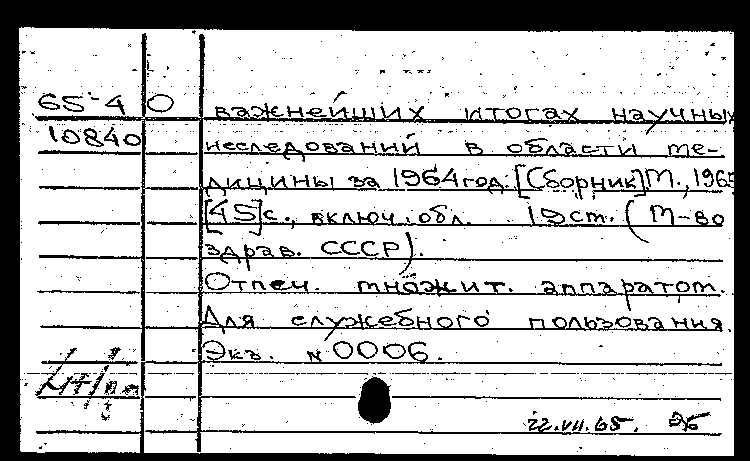 65-4 О важнейших итогах научных
10840 исследований в области ме-
дицины за 1964 год. [Сборник] М., 1965
[45] с., включ. обл. 19 см. (М-во
здрав. СССР).
Отпеч. множит. аппаратом.
Для служебного пользования.
Экз. N 0006.
22.VII.65.